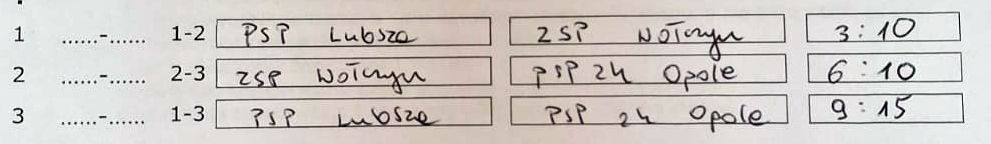 1 ......-...... 1-2 PSP Lubsza ZSP Wołczyn 3:10
2 ......-...... 2-3 ZSP Wołczyn PSP 24 Opole 6:10
3 ......-...... 1-3 PSP Lubsza PSP 24 Opole 9:15